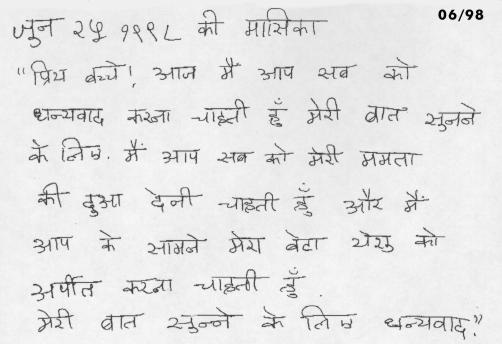 06/98
जुन २५ १९९८ की मासिका
"प्रिय बच्चे! आज मैं आप सब को
धन्यवाद करना चाहती हूँ मेरी बात सुनने
के लिए. मैं आप सब को मेरी ममता
की दुआ देनी चाहती हूँ और मैं
आप के सामने मेरा बेटा येसु को
अर्पीत करना चाहती हूँ.
मेरी बात सुन्ने के लिए धन्यवाद."